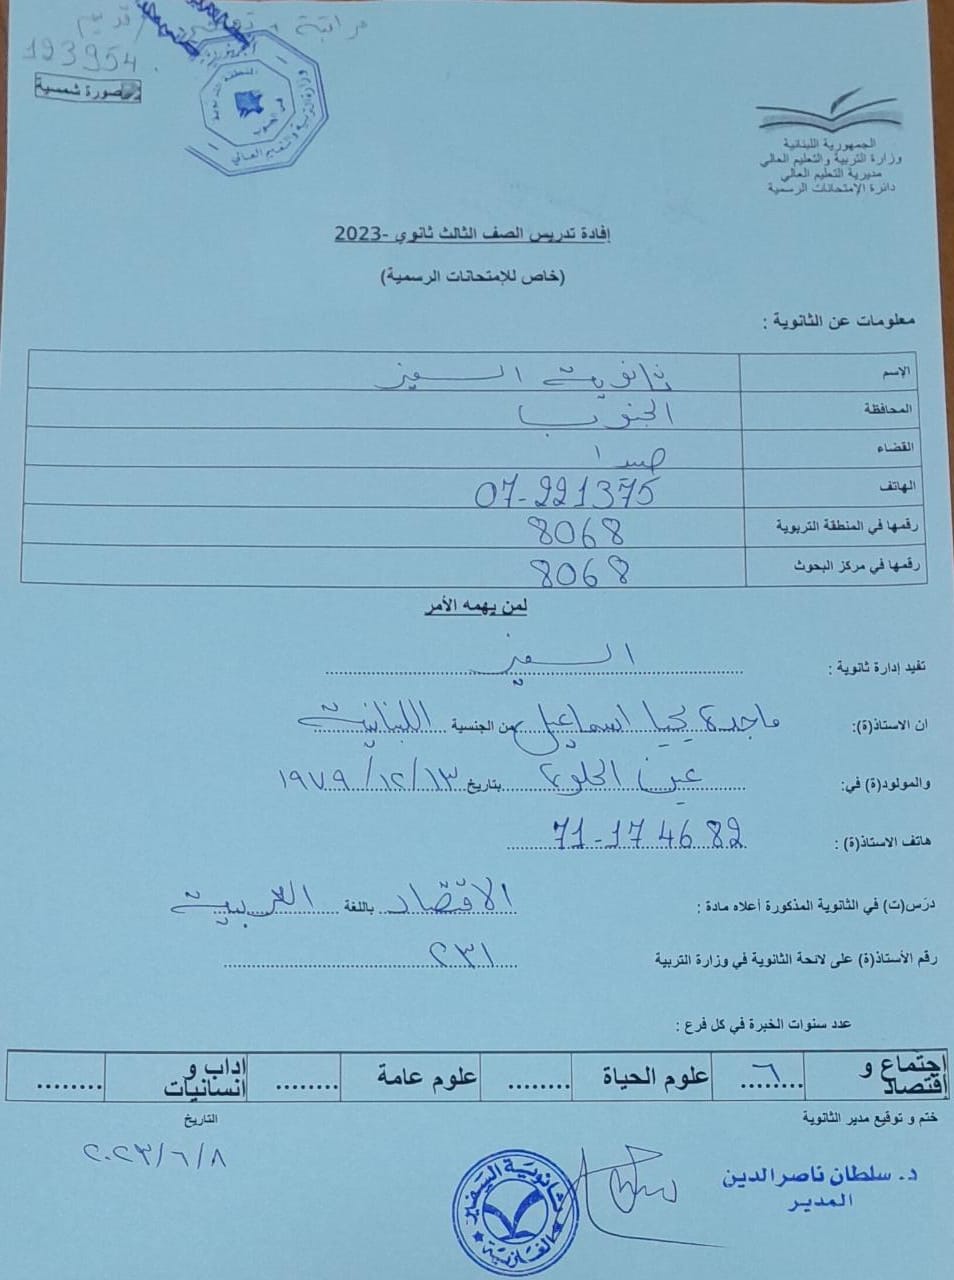 مراقبة
قديم
193954
صورة شمسية
وزارة التربية والتعليم العالي
المنطقة التربوية
في الجنوب
الجمهورية اللبنانية
وزارة التربية والتعليم العالي
مديرية التعليم العالي
دائرة الإمتحانات الرسمية
إفادة تدريس الصف الثالث ثانوي -2023
(خاص للإمتحانات الرسمية)
معلومات عن الثانوية :
الإسم ثانوية السفير
المحافظة الجنوب
القضاء صيدا
الهاتف 07-221375
رقمها في المنطقة التربوية 8068
رقمها في مركز البحوث 8068
لمن يهمه الأمر
تفيد إدارة ثانوية : السفير
ان الاستاذ(ة): ماجدة يحيا اسماعيل من الجنسية اللبنانية
والمولود(ة) في: عين الحلوة بتاريخ ١٣/١٢/١٩٧٩
هاتف الاستاذ(ة) : 71-174682
درّس(ت) في الثانوية المذكورة أعلاه مادة : الاقتصاد باللغة العربية
رقم الأستاذ(ة) على لائحة الثانوية في وزارة التربية ٢٣١
عدد سنوات الخبرة في كل فرع :
إجتماع و إقتصاد ٦........ علوم الحياة ........ علوم عامة ........ اداب و انسانيات ........
ختم و توقيع مدير الثانوية التاريخ
٢٠٢٣/٦/٨
د. سلطان ناصر الدين
المدير
ثانوية السفير
الغازية